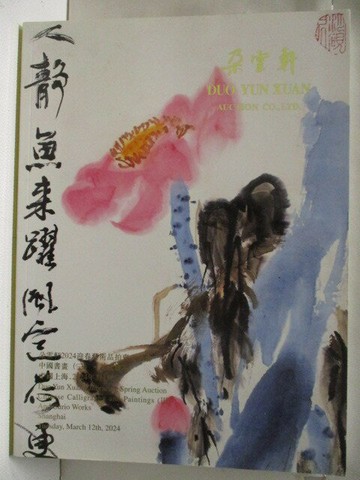 人静魚来躍風定荷更
朵雲軒
DUO YUN XUAN
AUCTION CO., LTD.
2024迎春藝術品拍賣
中國書畫
上海
Duo Yun Xuan Spring Auction
Calligraphy Paintings
Works
Shanghai
March 12th, 2024